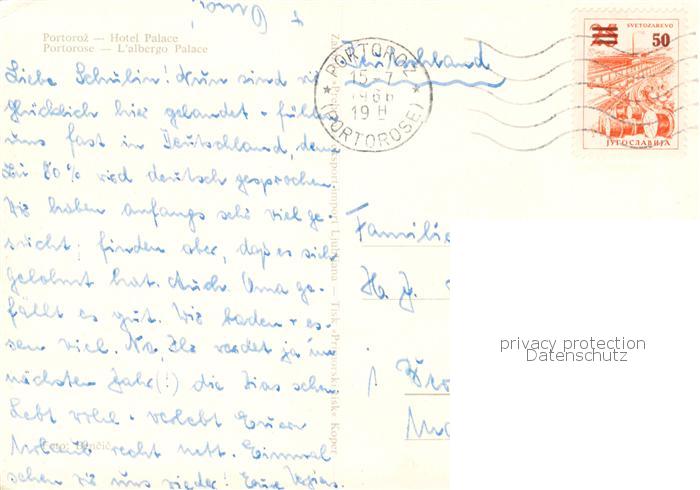 + Oma!
Portorož — Hotel Palace
Portorose — L'albergo Palace
Liebe Schülin! Nun sind wir
glücklich hier gelandet + fühlen
uns fast in Deutschland, denn
zu 80% wird deutsch gesprochen.
Wir haben anfangs sehr viel ge-
sucht, finden aber, daß es sich
gelohnt hat. Auch Oma ge-
fällt es gut. Wir baden + es-
sen viel. Na, Ihr werdet ja im
nächsten Jahr (!) die
Lebt wohl + verlebt Euern
Urlaub recht nett. Einmal
sehen wir uns wieder! Eure
Foto:
Ljubljana — Tisk »Primorski tisk« Koper
Deutschland
PORTOROŽ
15-7
1966
19 H
(PORTOROSE)
SVETOZAREVO
25 50
JUGOSLAVIJA
Familie
H. J.
privacy protection
Datenschutz